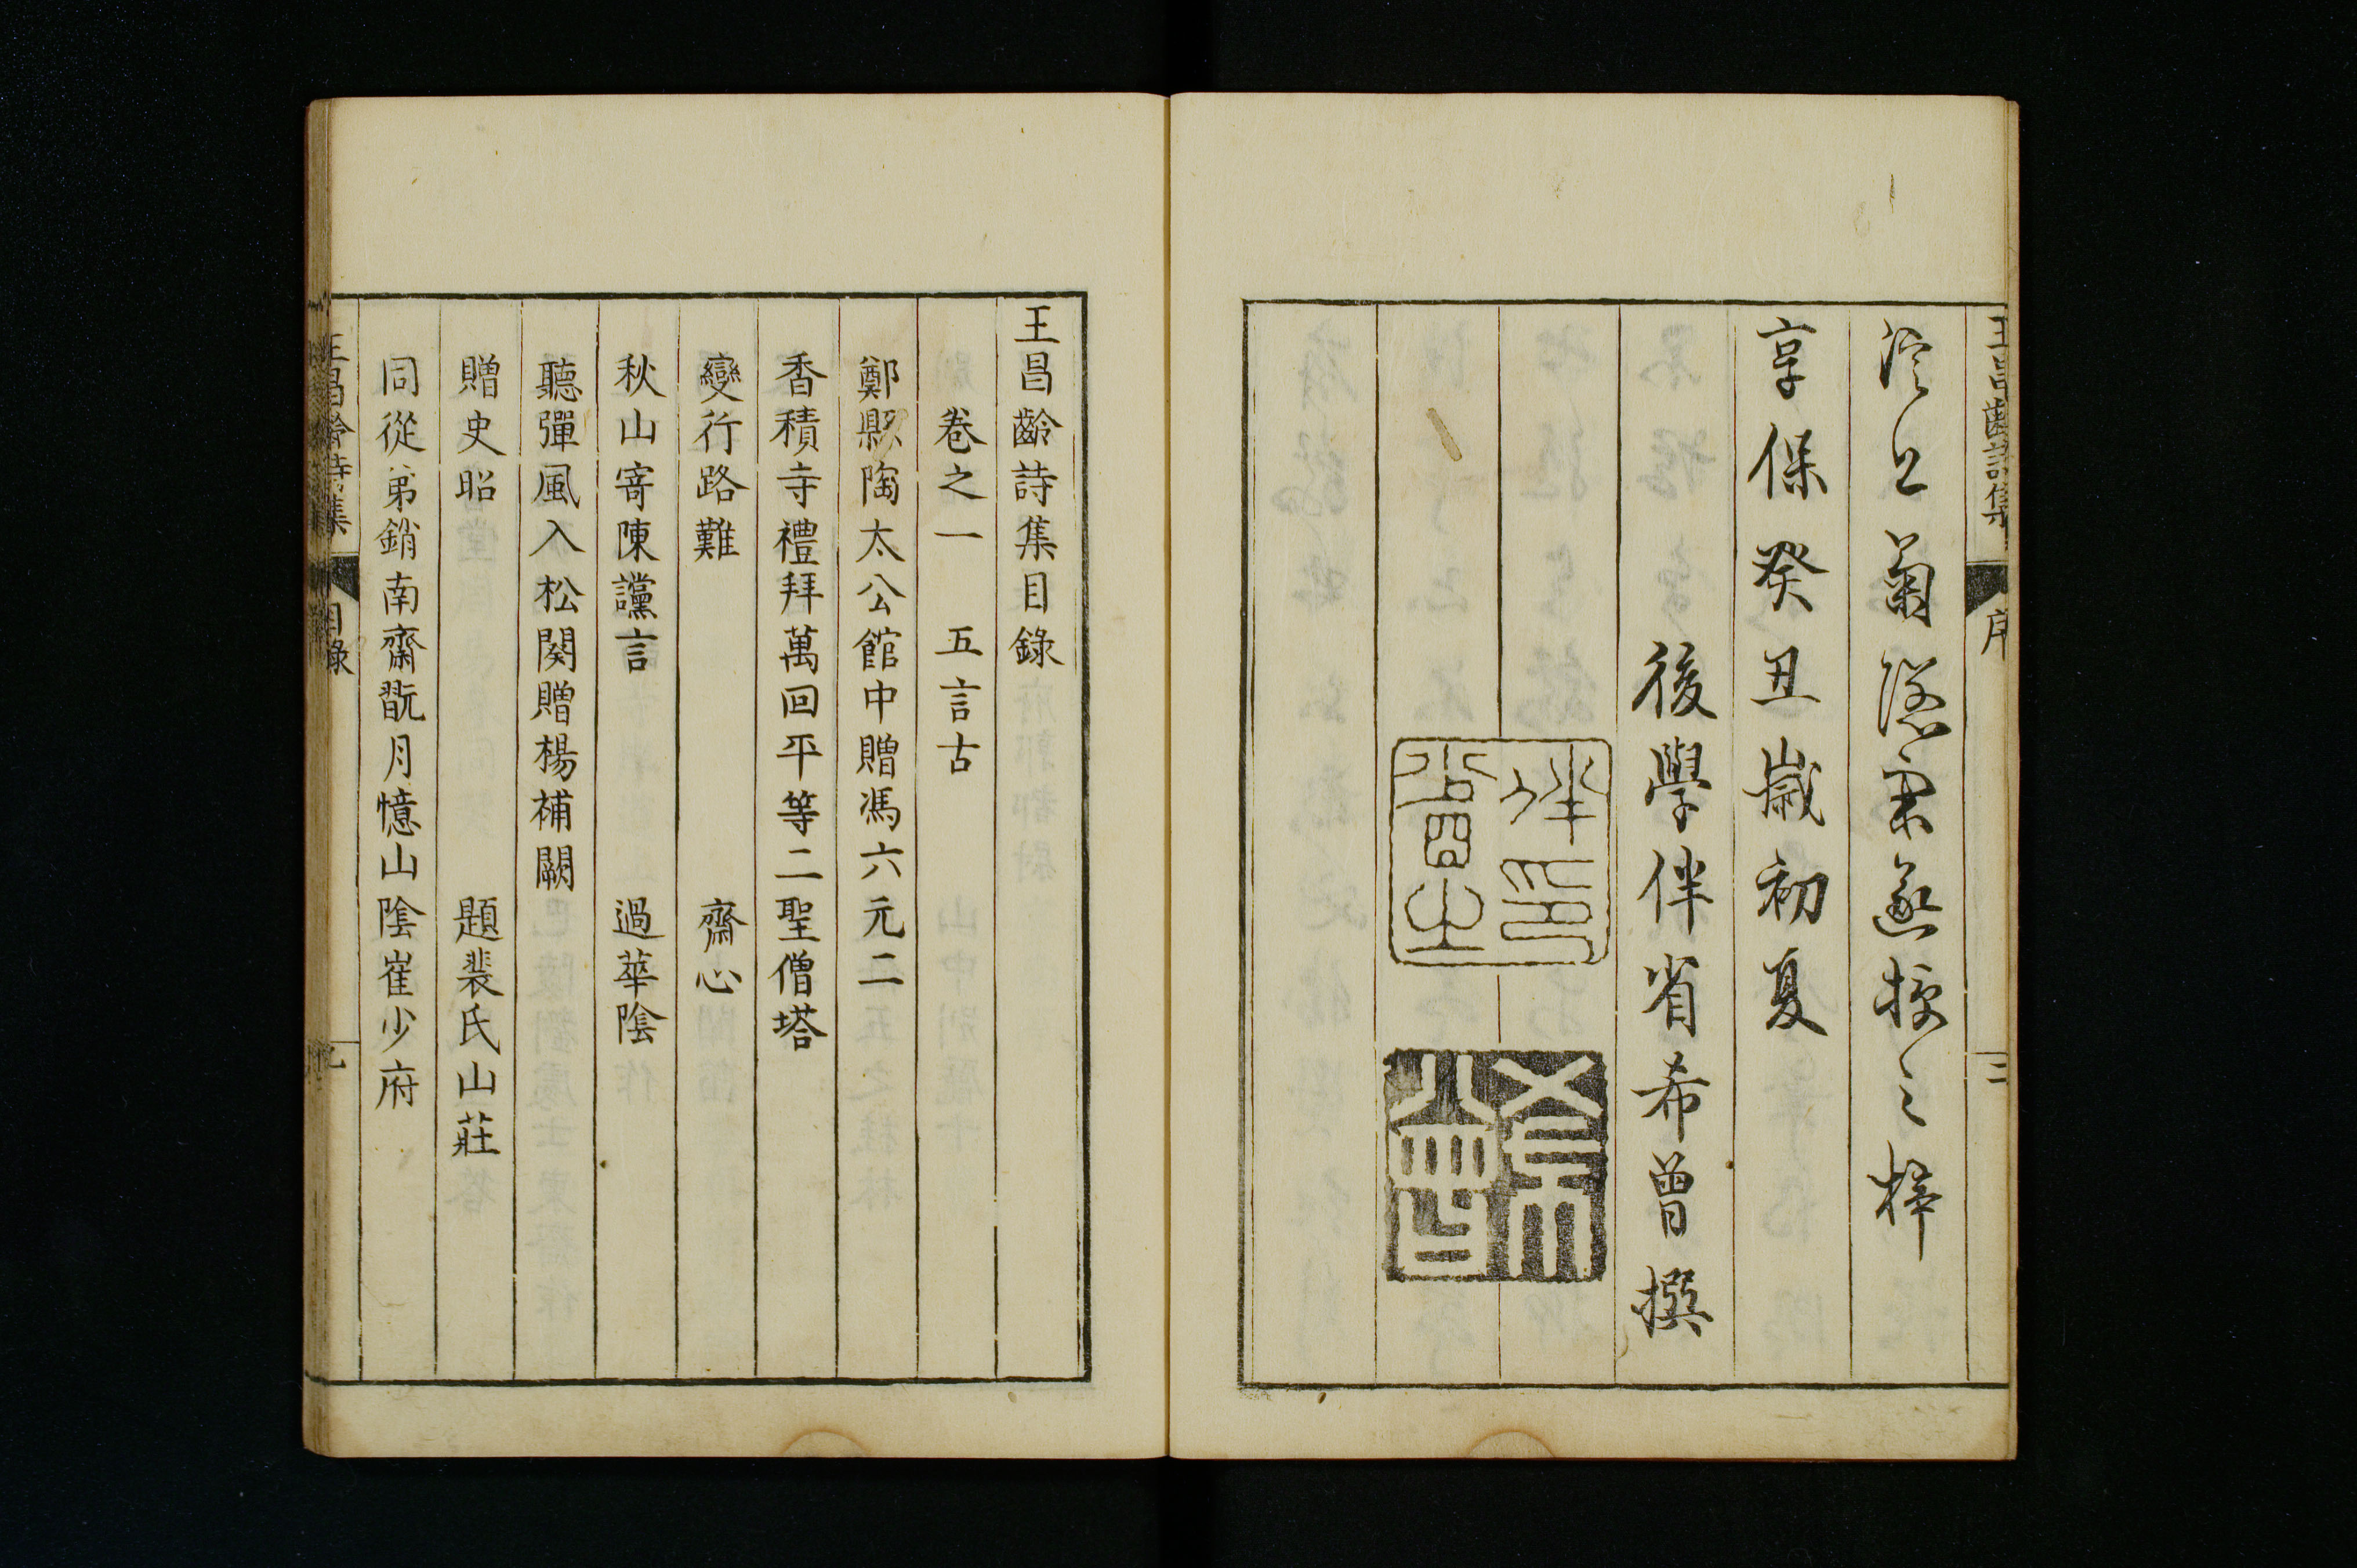 王昌齡詩集
序
三
享保癸丑歲初夏
後學伴省希曾撰
王昌齡詩集目錄
卷之一 五言古
鄭縣陶太公館中贈馮六元二
香積寺禮拜萬回平等二聖僧塔
變行路難 齋心
秋山寄陳讜言 過華陰
聽彈風入松闋贈楊補闕
贈史昭 題裴氏山莊
同從弟銷南齋翫月憶山陰崔少府
王昌齡詩集
目錄